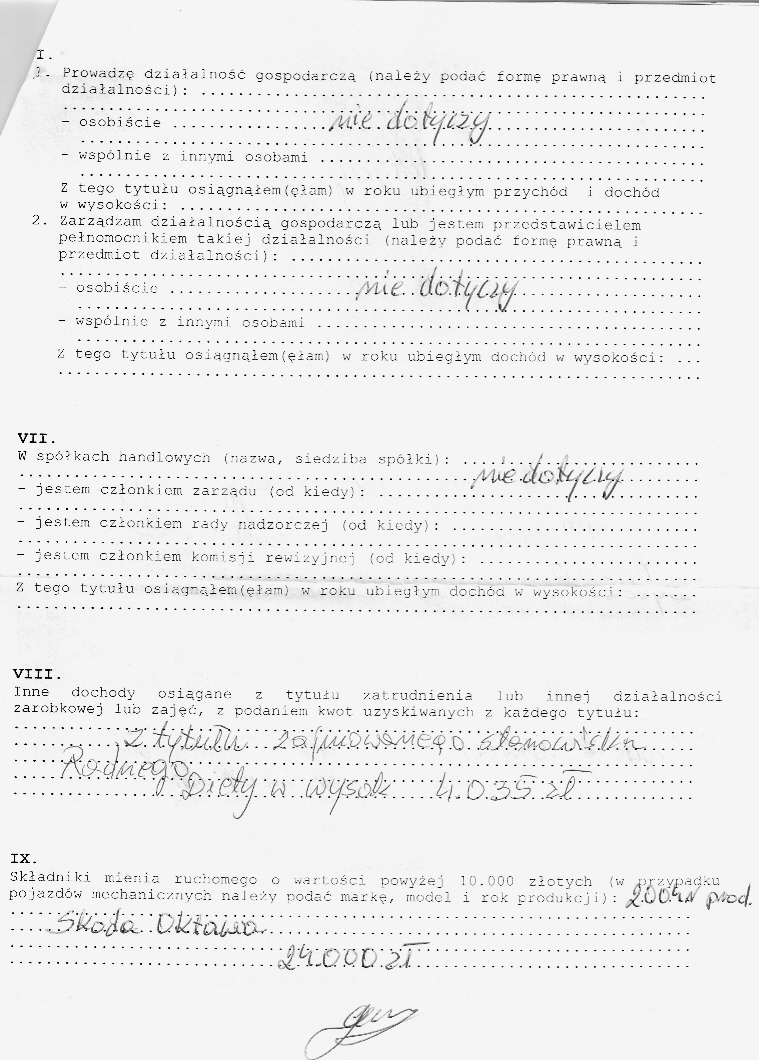 I.
1. Prowadzę działalność gospodarczą (należy podać formę prawną i przedmiot
działalności): ........................................................
........................................................................
- osobiście ................. nie dotyczy ........................
........................................................................
- wspólnie z innymi osobami ..........................................
........................................................................
Z tego tytułu osiągnąłem(ęłam) w roku ubiegłym przychód i dochód
w wysokości: ..........................................................
2. Zarządzam działalnością gospodarczą lub jestem przedstawicielem
pełnomocnikiem takiej działalności (należy podać formę prawną i
przedmiot działalności): .............................................
........................................................................
- osobiście .................... nie dotyczy ....................
........................................................................
- wspólnie z innymi osobami ..........................................
........................................................................
Z tego tytułu osiągnąłem(ęłam) w roku ubiegłym dochód w wysokości: ...
........................................................................
VII.
W spółkach handlowych (nazwa, siedziba spółki): ..........................
.................................................. nie dotyczy ........
- jestem członkiem zarządu (od kiedy): ...................................
..........................................................................
- jestem członkiem rady nadzorczej (od kiedy): ...........................
..........................................................................
- jestem członkiem komisji rewizyjnej (od kiedy): ........................
..........................................................................
Z tego tytułu osiągnąłem(ęłam) w roku ubiegłym dochód w wysokości: .......
..........................................................................
VIII.
Inne dochody osiągane z tytułu zatrudnienia lub innej działalności
zarobkowej lub zajęć, z podaniem kwot uzyskiwanych z każdego tytułu:
z tytułu zajmowanego stanowiska
Radnego
Diety w wysok 4.035 zł
IX.
Składniki mienia ruchomego o wartości powyżej 10.000 złotych (w przypadku
pojazdów mechanicznych należy podać markę, model i rok produkcji): 2004 prod.
Skoda Oktawia
24.000 zł